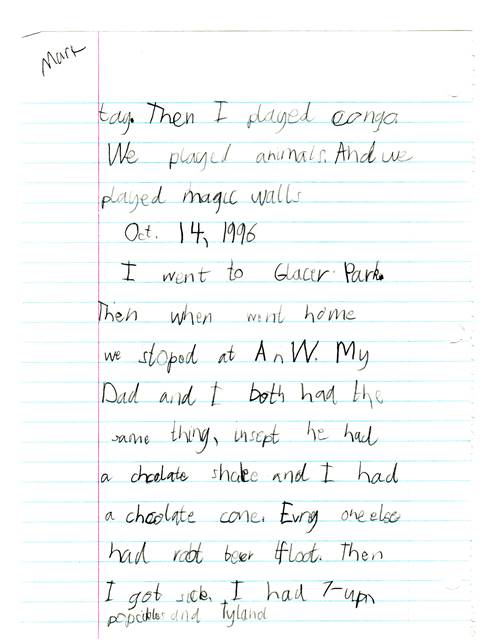 Mark
tay. Then I played conga.
We played animals. And we
played magic walls
Oct. 14, 1996
I went to Glacer Park.
Then when went home
we stoped at A n W. My
Dad and I both had the
same thing, insept he had
a chcolate shake and I had
a choolate cone. Evrey one else
had root beer floot. Then
I got sick. I had 7-upn
popcicles and Tyland